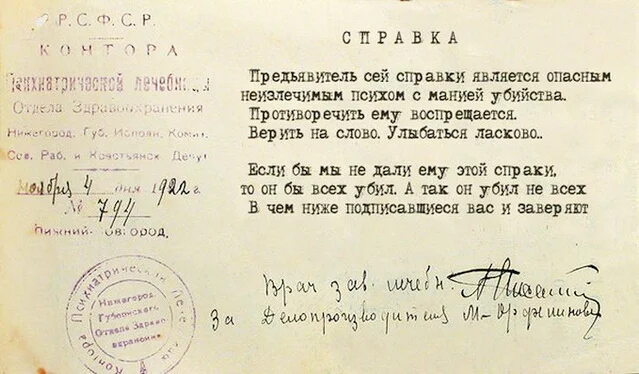 Р.С.Ф.С.Р.
КОНТОРА
Психиатрической лечебницы
Отдела Здравоохранения
Нижегород. Губ. Исполн. Комит.
Сов. Раб. и Крестьянск. Депут
ноября 4 дня 1922 г.
№ 794
Нижний-Новгород.
СПРАВКА
Предьявитель сей справки является опасным
неизлечимым психом с манией убийства.
Противоречить ему воспрещается.
Верить на слово. Улыбаться ласково..
Если бы мы не дали ему этой спраки,
то он бы всех убил. А так он убил не всех
В чем ниже подписавшиеся вас и заверяют
Врач зав. лечебн.
За Делопроизводителя
Контора Психиатрической Лече
Нижегород.
Губернского
Отдела Здраво-
охранения